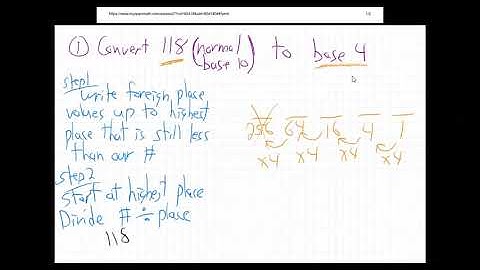 ① Convert 118 (normal base 10) to base 4
step 1
write foreign place
values up to highest
place that is still less
than our #
step 2
Start at highest place
Divide # ÷ place
118
256 64 16 4 1
x4 x4 x4 x4